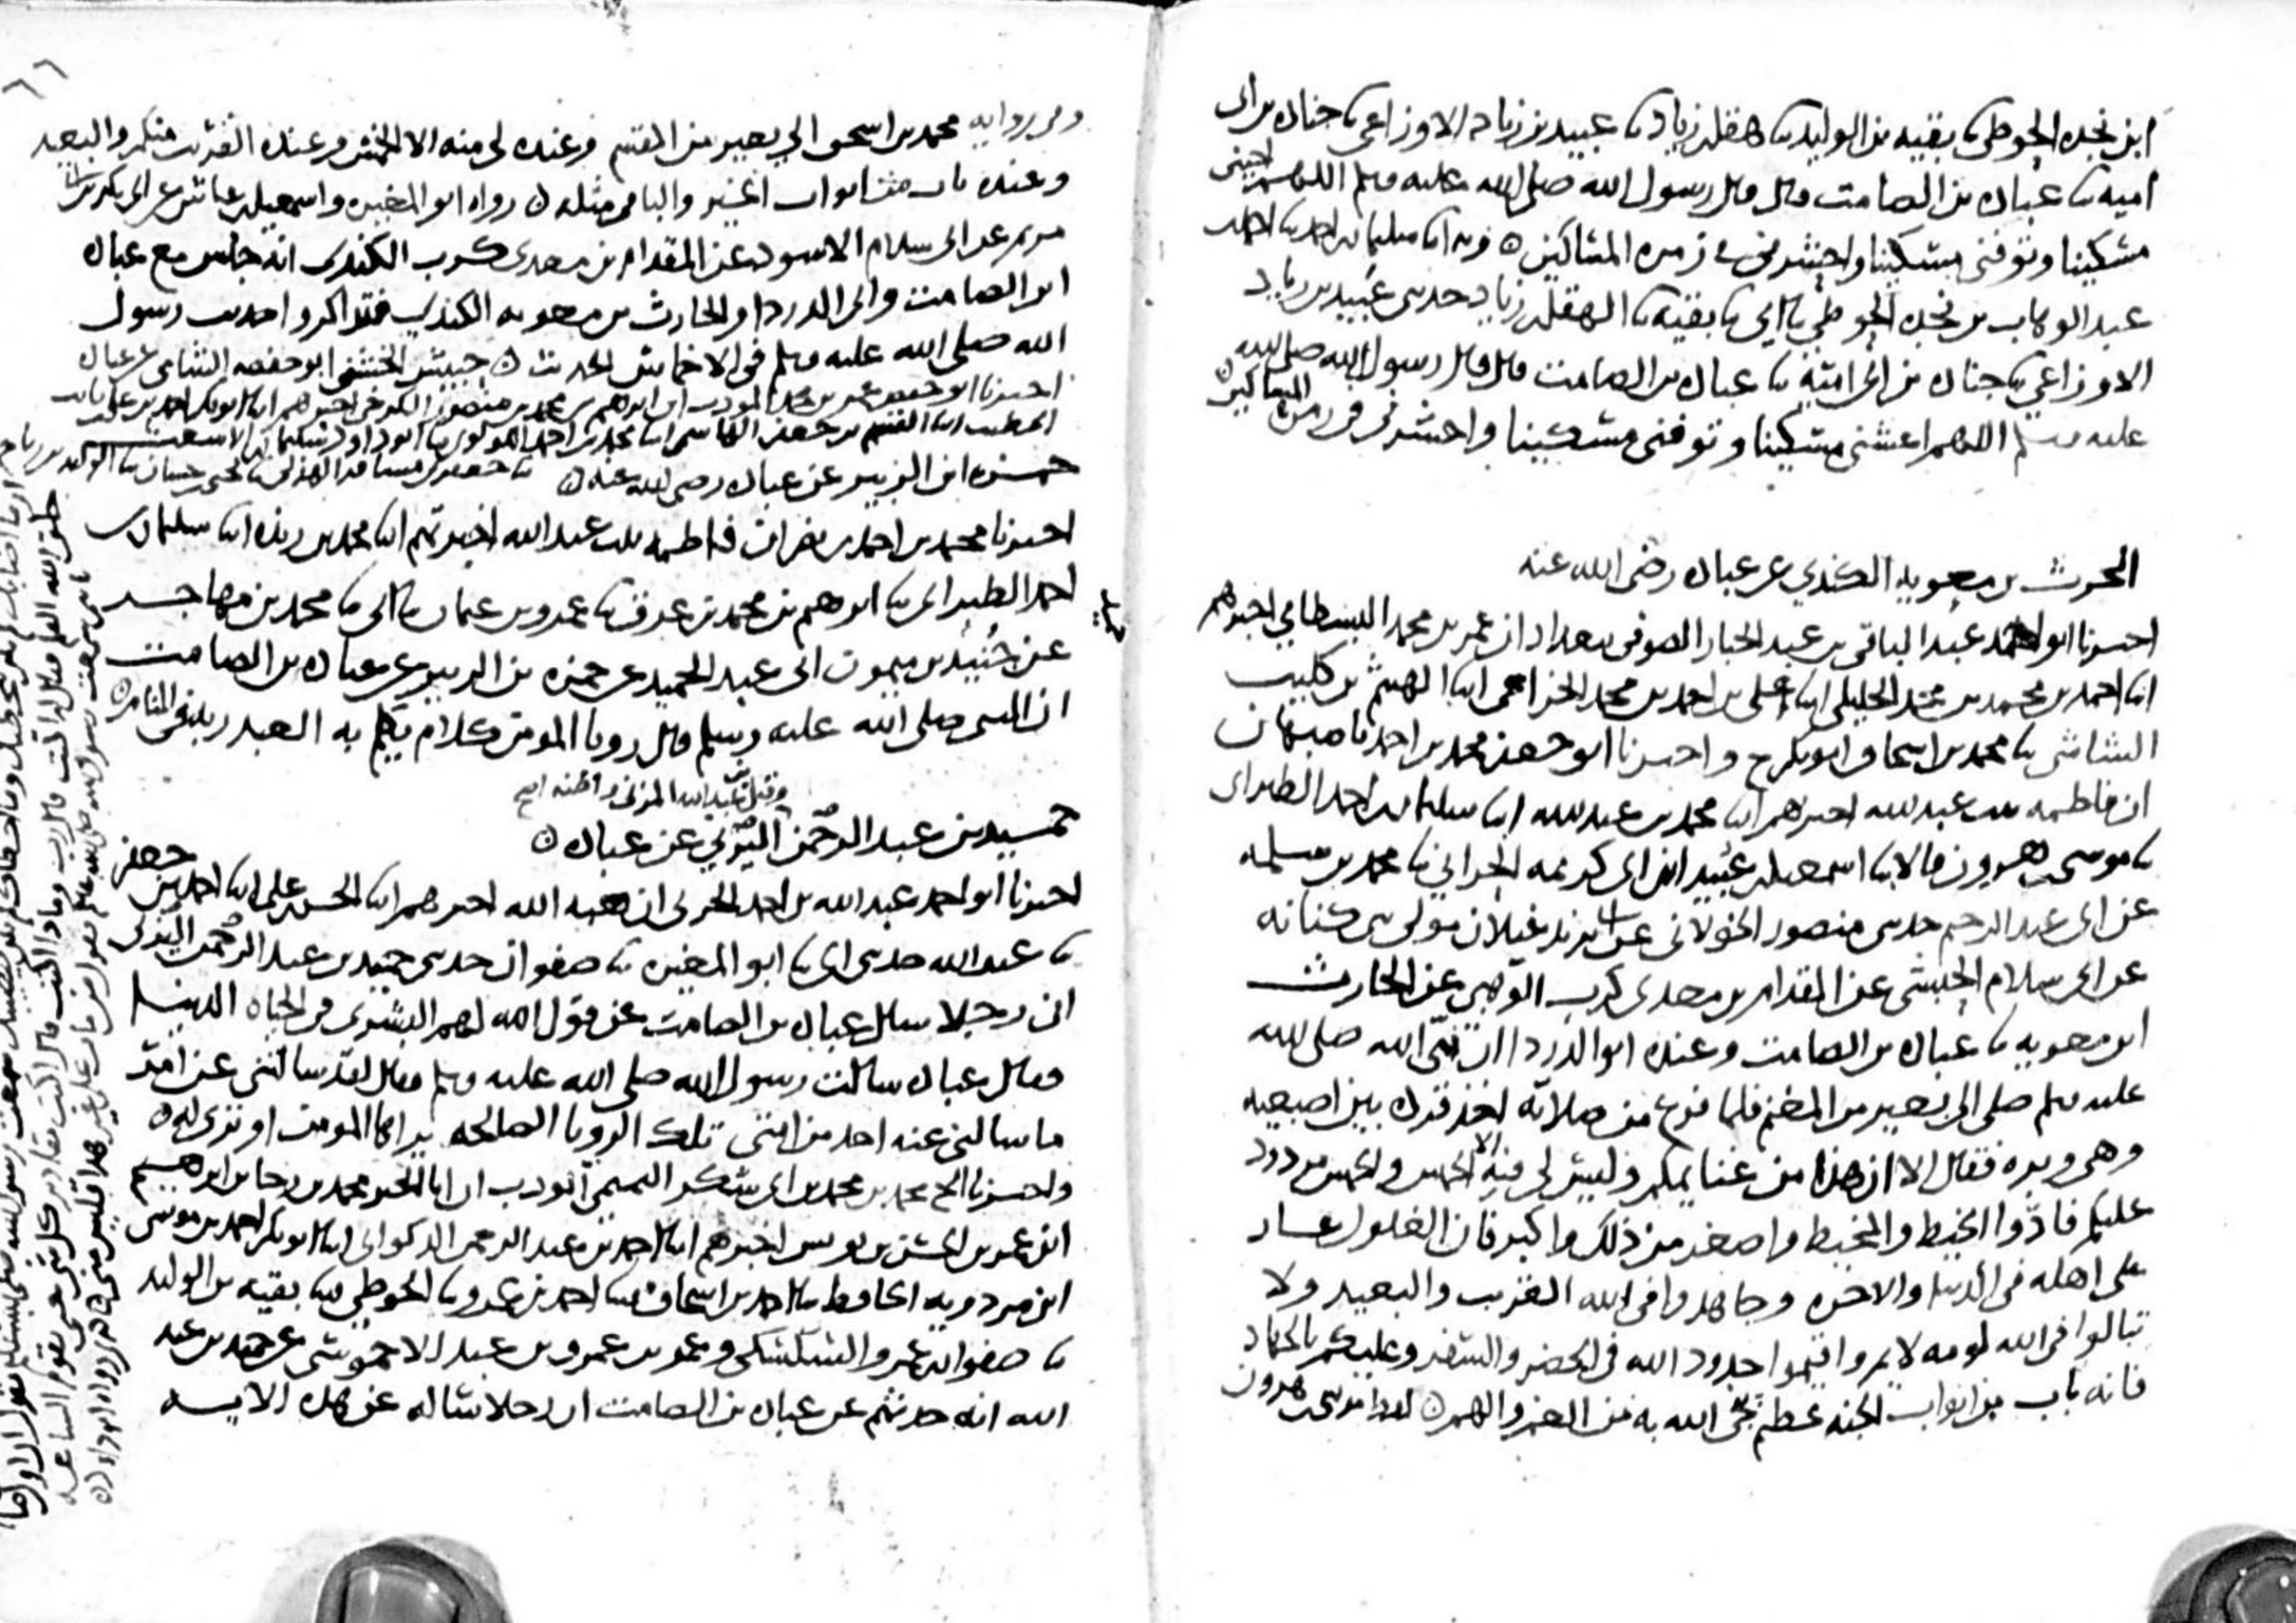 ابن نجده الحوطي نا بقيه بن الوليد نا هقل بن زياد نا عبيد بن زياد الاوزاعي نا جناده بن ابي
اميه نا عباده بن الصامت قال قال رسول الله صلى الله عليه وسلم اللهم احيني
مسكينا وتوفني مسكينا واحشرني في زمره المساكين ه وبه انا سليمان بن احمد نا احمد بن
عبد الوهاب بن نجده الحوطي نا ابي نا بقيه نا الهقل بن زياد حدثني عبيد بن زياد
الاوزاعي نا جناده بن ابي اميه نا عباده بن الصامت قال قال رسول الله صلى الله
عليه وسلم اللهم اعشني مسكينا وتوفني مسكينا واحشرني في زمره المساكين ه
الحرث بن معويه الكندي عن عباده رضي الله عنه
اخبرنا ابو احمد عبد الباقي بن عبد الجبار الصوفي ببغداد ان عمر بن محمد البسطامي اخبرهم
انا احمد بن محمد بن محمد الخليلي انا علي بن احمد بن محمد الخزاعي انا الهيثم بن كليب
الشاشي نا محمد بن اسحاق ابو بكر ح واخبرنا ابو جعفر محمد بن احمد باصبهان
ان فاطمه بنت عبد الله اخبرهم انا محمد بن عبد الله انا سليمان بن احمد الطبراني
نا موسى بن هرون قالا نا اسمعيل بن عبيد ابن ابي كريمه الحراني نا محمد بن سلمه
عن ابي عبد الرحيم حدثني منصور الخولاني عن ابي يزيد غيلان مولى بني كنانه
عن ابي سلام الحبشي عن المقدام بن معدي كرب الوهبي عن الحارث
ابن معويه نا عباده بن الصامت وعنده ابو الدرداء ان نبي الله صلى الله
عليه وسلم صلى الى بعير من المغنم فلما فرغ من صلاته اخذ قرده بين اصبعيه
وهي وبره فقال الا ان هذا من غنايمكم وليس لي منه الا الخمس والخمس مردود
عليكم فادوا الخيط والمخيط واصغر من ذلك واكبر فان الغلول عار
على اهله في الدنيا والاخره وجاهدوا في الله القريب والبعيد ولا
تبالوا في الله لومه لايم واقيموا حدود الله في الحضر والسفر وعليكم بالجهاد
فانه باب من ابواب الجنه عظيم ينجي الله به من الغم والهم ه لفظ موسى بن هرون
وفي روايه محمد بن اسحق الى بعير من المقسم وعنده لي منه الا الخمس وعنده القريب منكم والبعيد
وعنده باب من ابواب الخير والباقي مثله ه رواه ابو المغيره واسمعيل بن عياش عن ابي بكر بن ابي
مريم عن ابي سلام الاسود عن المقدام بن معدي كرب الكندي انه جلس مع عباده
ابن الصامت وابي الدرداء والحارث بن معويه الكندي فتذاكروا حديث رسول
الله صلى الله عليه وسلم في الاخماس الحديث ه حبيش الحبشي ابو حفصه الشامي عن عباده
اخبرنا ابو حفص عمر بن محمد المودب ان ابراهيم بن محمد بن منصور الكرخي اخبرهم انا ابو بكر احمد بن علي بن ثابت
الخطيب انا القسم بن جعفر الهاشمي انا محمد بن احمد اللولوي نا ابو داود سليمان بن الاشعث
نا جعفر بن مسافر الهذلي نا يحيى بن حسان نا الوليد بن رباح
حمزه ابن الزبير عن عباده رضي الله عنه ه
اخبرنا محمد بن احمد بن نصر ان فاطمه بنت عبد الله اخبرتهم انا محمد بن ريذه انا سليمان بن
احمد الطبراني نا ابراهيم بن محمد بن عرق نا عمرو بن عثمان نا ابي نا محمد بن مهاجر
عن جنيد بن ميمون ابي عبد الحميد عن حمزه بن الزبير عن عباده بن الصامت
ان النبي صلى الله عليه وسلم قال رويا المومن كلام يكلم به العبد ربه في المنام ه
وقيل بن عبد الله المزني واظنه اصح
حميد بن عبد الرحمن اليزني عن عباده ه
اخبرنا ابو احمد عبد الله بن احمد الحربي ان هبه الله اخبرهم انا الحسن بن علي انا احمد بن جعفر
نا عبد الله حدثني ابي نا ابو المغيره نا صفوان حدثني حميد بن عبد الرحمن اليزني
ان رجلا سال عباده بن الصامت عن قول الله لهم البشرى في الحياه الدنيا
فقال عباده سالت رسول الله صلى الله عليه وسلم فقال لقد سالتني عن امر
ما سالني عنه احد من امتي تلك الرويا الصالحه يراها المومن او ترى له ه
واخبرنا محمد بن محمد بن ابي شكر التميمي المودب ان ابا الخير محمد بن رجا بن ابراهيم
ابن عمر بن الحسن بن يونس اخبرهم انا احمد بن عبد الرحمن الذكواني انا ابو بكر احمد بن موسى
ابن مردويه الحافظ نا احمد بن اسحاق نا احمد بن عمرو نا الحوطي نا بقيه بن الوليد
نا صفوان بن عمرو السكسكي وعمر بن عمرو بن عبد الاحموسي عن حميد بن عبد
الله انه حدثهم عن عباده بن الصامت ان رجلا ساله عن هذه الايه
ما اصابك لم يكن ليخطيك وما اخطاك لم يكن ليصيبك سمعت رسول الله صلى الله عليه وسلم يقول ان اول ما
خلق الله القلم فقال له اكتب قال رب وماذا اكتب قال اكتب مقادير كل شي حتى تقوم الساعه
يا بني سمعت رسول الله صلى الله عليه وسلم يقول من مات على غير هذا فليس مني رواه ابو داود ه